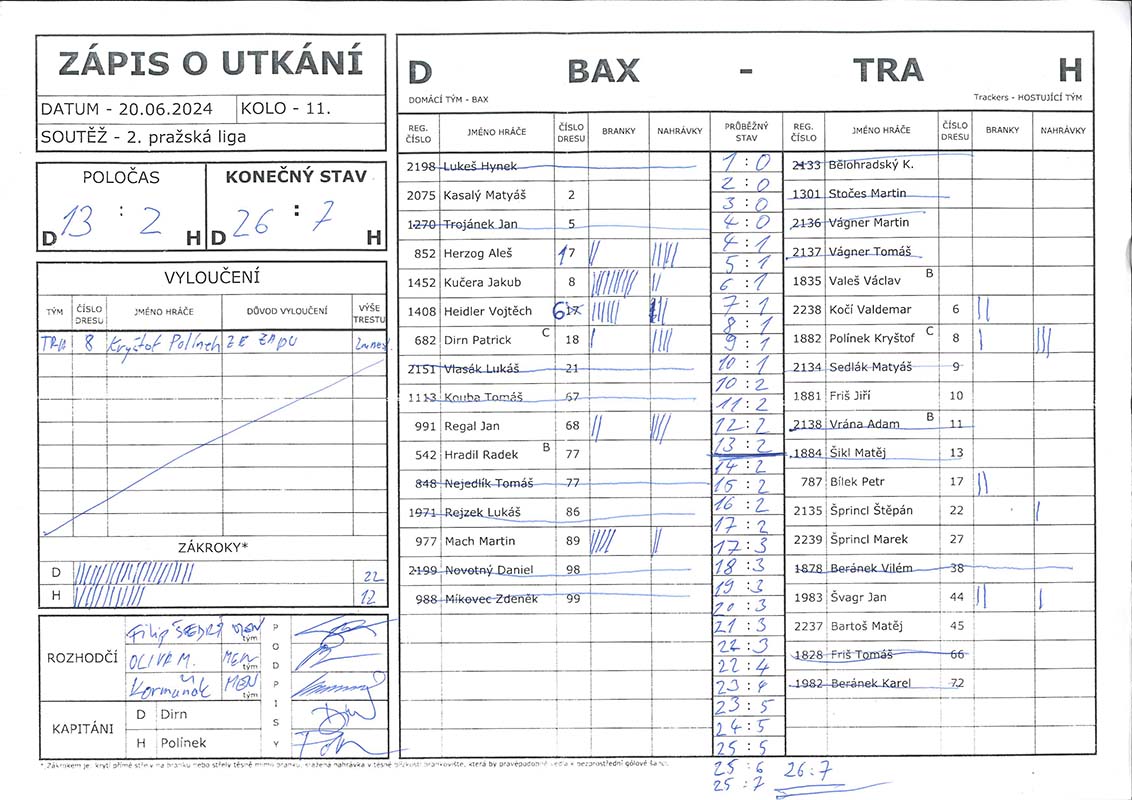 ZÁPIS O UTKÁNÍ
DATUM - 20.06.2024 KOLO - 11.
SOUTĚŽ - 2. pražská liga
POLOČAS KONEČNÝ STAV
D 13 : 2 H D 26 : 7 H
VYLOUČENÍ
TÝM ČÍSLO DRESU JMÉNO HRÁČE DŮVOD VYLOUČENÍ VÝŠE TRESTU
TRA 8 Kryštof Polínek ZE ZADU
ZÁKROKY*
D 22
H 12
ROZHODČÍ
Filip ŠEDRÝ MEN tým
OLIVA M. MEN tým
Kormaňok MEN tým
PODPISY
KAPITÁNI
D Dirn
H Polínek
D BAX - TRA H
DOMÁCÍ TÝM - BAX Trackers - HOSTUJÍCÍ TÝM
REG. ČÍSLO JMÉNO HRÁČE ČÍSLO DRESU BRANKY NAHRÁVKY PRŮBĚŽNÝ STAV REG. ČÍSLO JMÉNO HRÁČE ČÍSLO DRESU BRANKY NAHRÁVKY
2198 Lukeš Hynek
2075 Kasalý Matyáš 2
1270 Trojánek Jan 5
852 Herzog Aleš 17
1452 Kučera Jakub 8
1408 Heidler Vojtěch 6 17
682 Dirn Patrick C 18
2151 Vlasák Lukáš 21
1113 Kouba Tomáš 67
991 Regal Jan 68
542 Hradil Radek B 77
848 Nejedlík Tomáš 77
1971 Rejzek Lukáš 86
977 Mach Martin 89
2199 Novotný Daniel 98
988 Míkovec Zdeněk 99
1 : 0
2 : 0
3 : 0
4 : 0
4 : 1
5 : 1
6 : 1
7 : 1
8 : 1
9 : 1
10 : 1
10 : 2
11 : 2
12 : 2
13 : 2
14 : 2
15 : 2
16 : 2
17 : 2
17 : 3
18 : 3
19 : 3
20 : 3
21 : 3
22 : 3
22 : 4
23 : 4
23 : 5
24 : 5
25 : 5
25 : 6 26 : 7
25 : 7
2133 Bělohradský K.
1301 Stočes Martin
2136 Vágner Martin
2137 Vágner Tomáš
1835 Valeš Václav B
2238 Kočí Valdemar 6
1882 Polínek Kryštof C 8
2134 Sedlák Matyáš 9
1881 Friš Jiří 10
2138 Vrána Adam B 11
1884 Šikl Matěj 13
787 Bílek Petr 17
2135 Šprincl Štěpán 22
2239 Šprincl Marek 27
1878 Beránek Vilém 38
1983 Švagr Jan 44
2237 Bartoš Matěj 45
1828 Friš Tomáš 66
1982 Beránek Karel 72